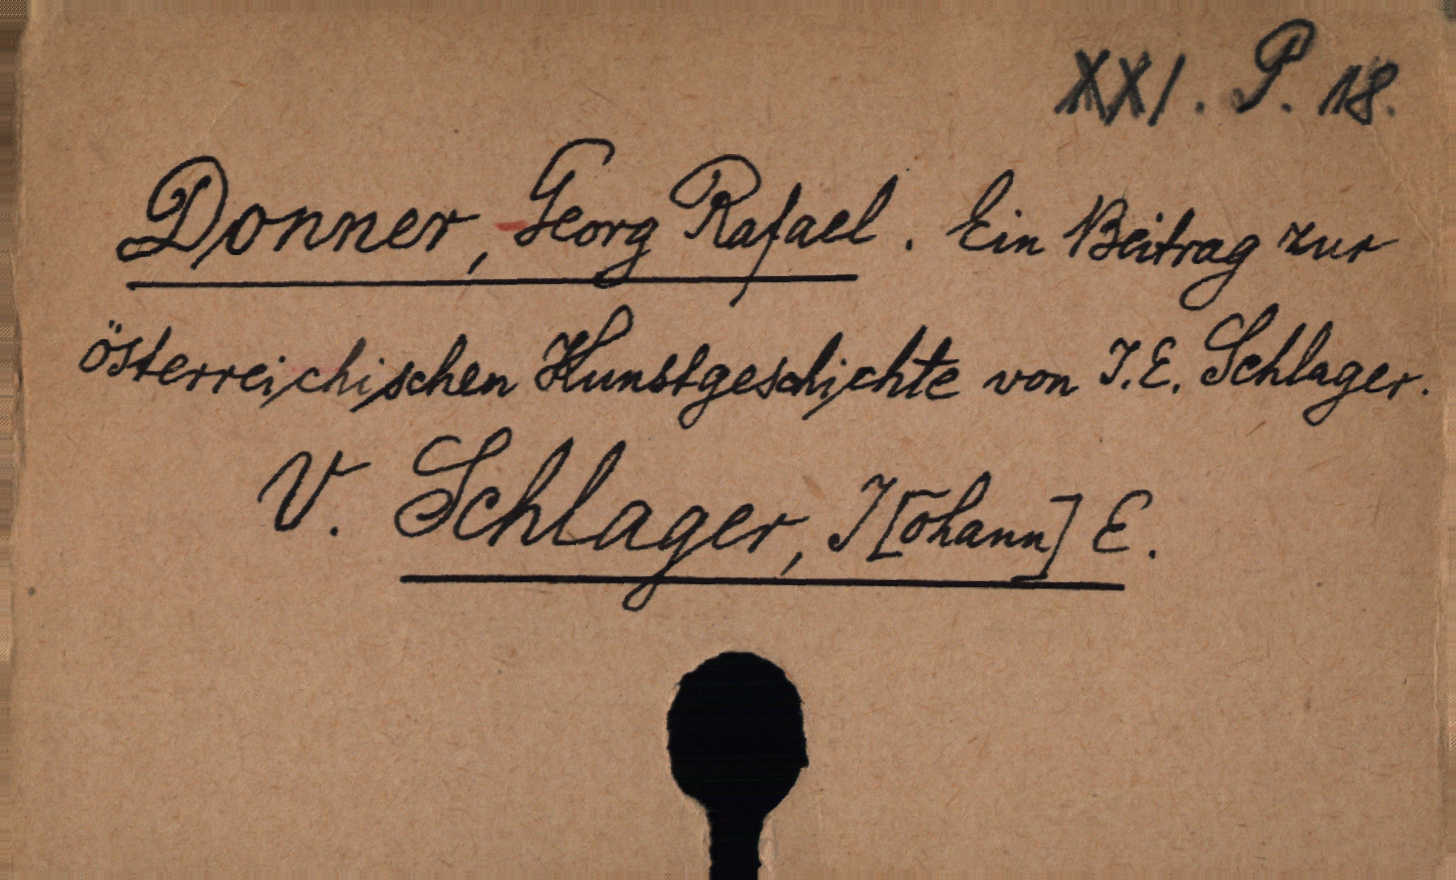 XXI. P. 18.
Donner, Georg Rafael. Ein Beitrag zur
österreichischen Kunstgeschichte von J. E. Schlager.
V. Schlager, J[ohann] E.